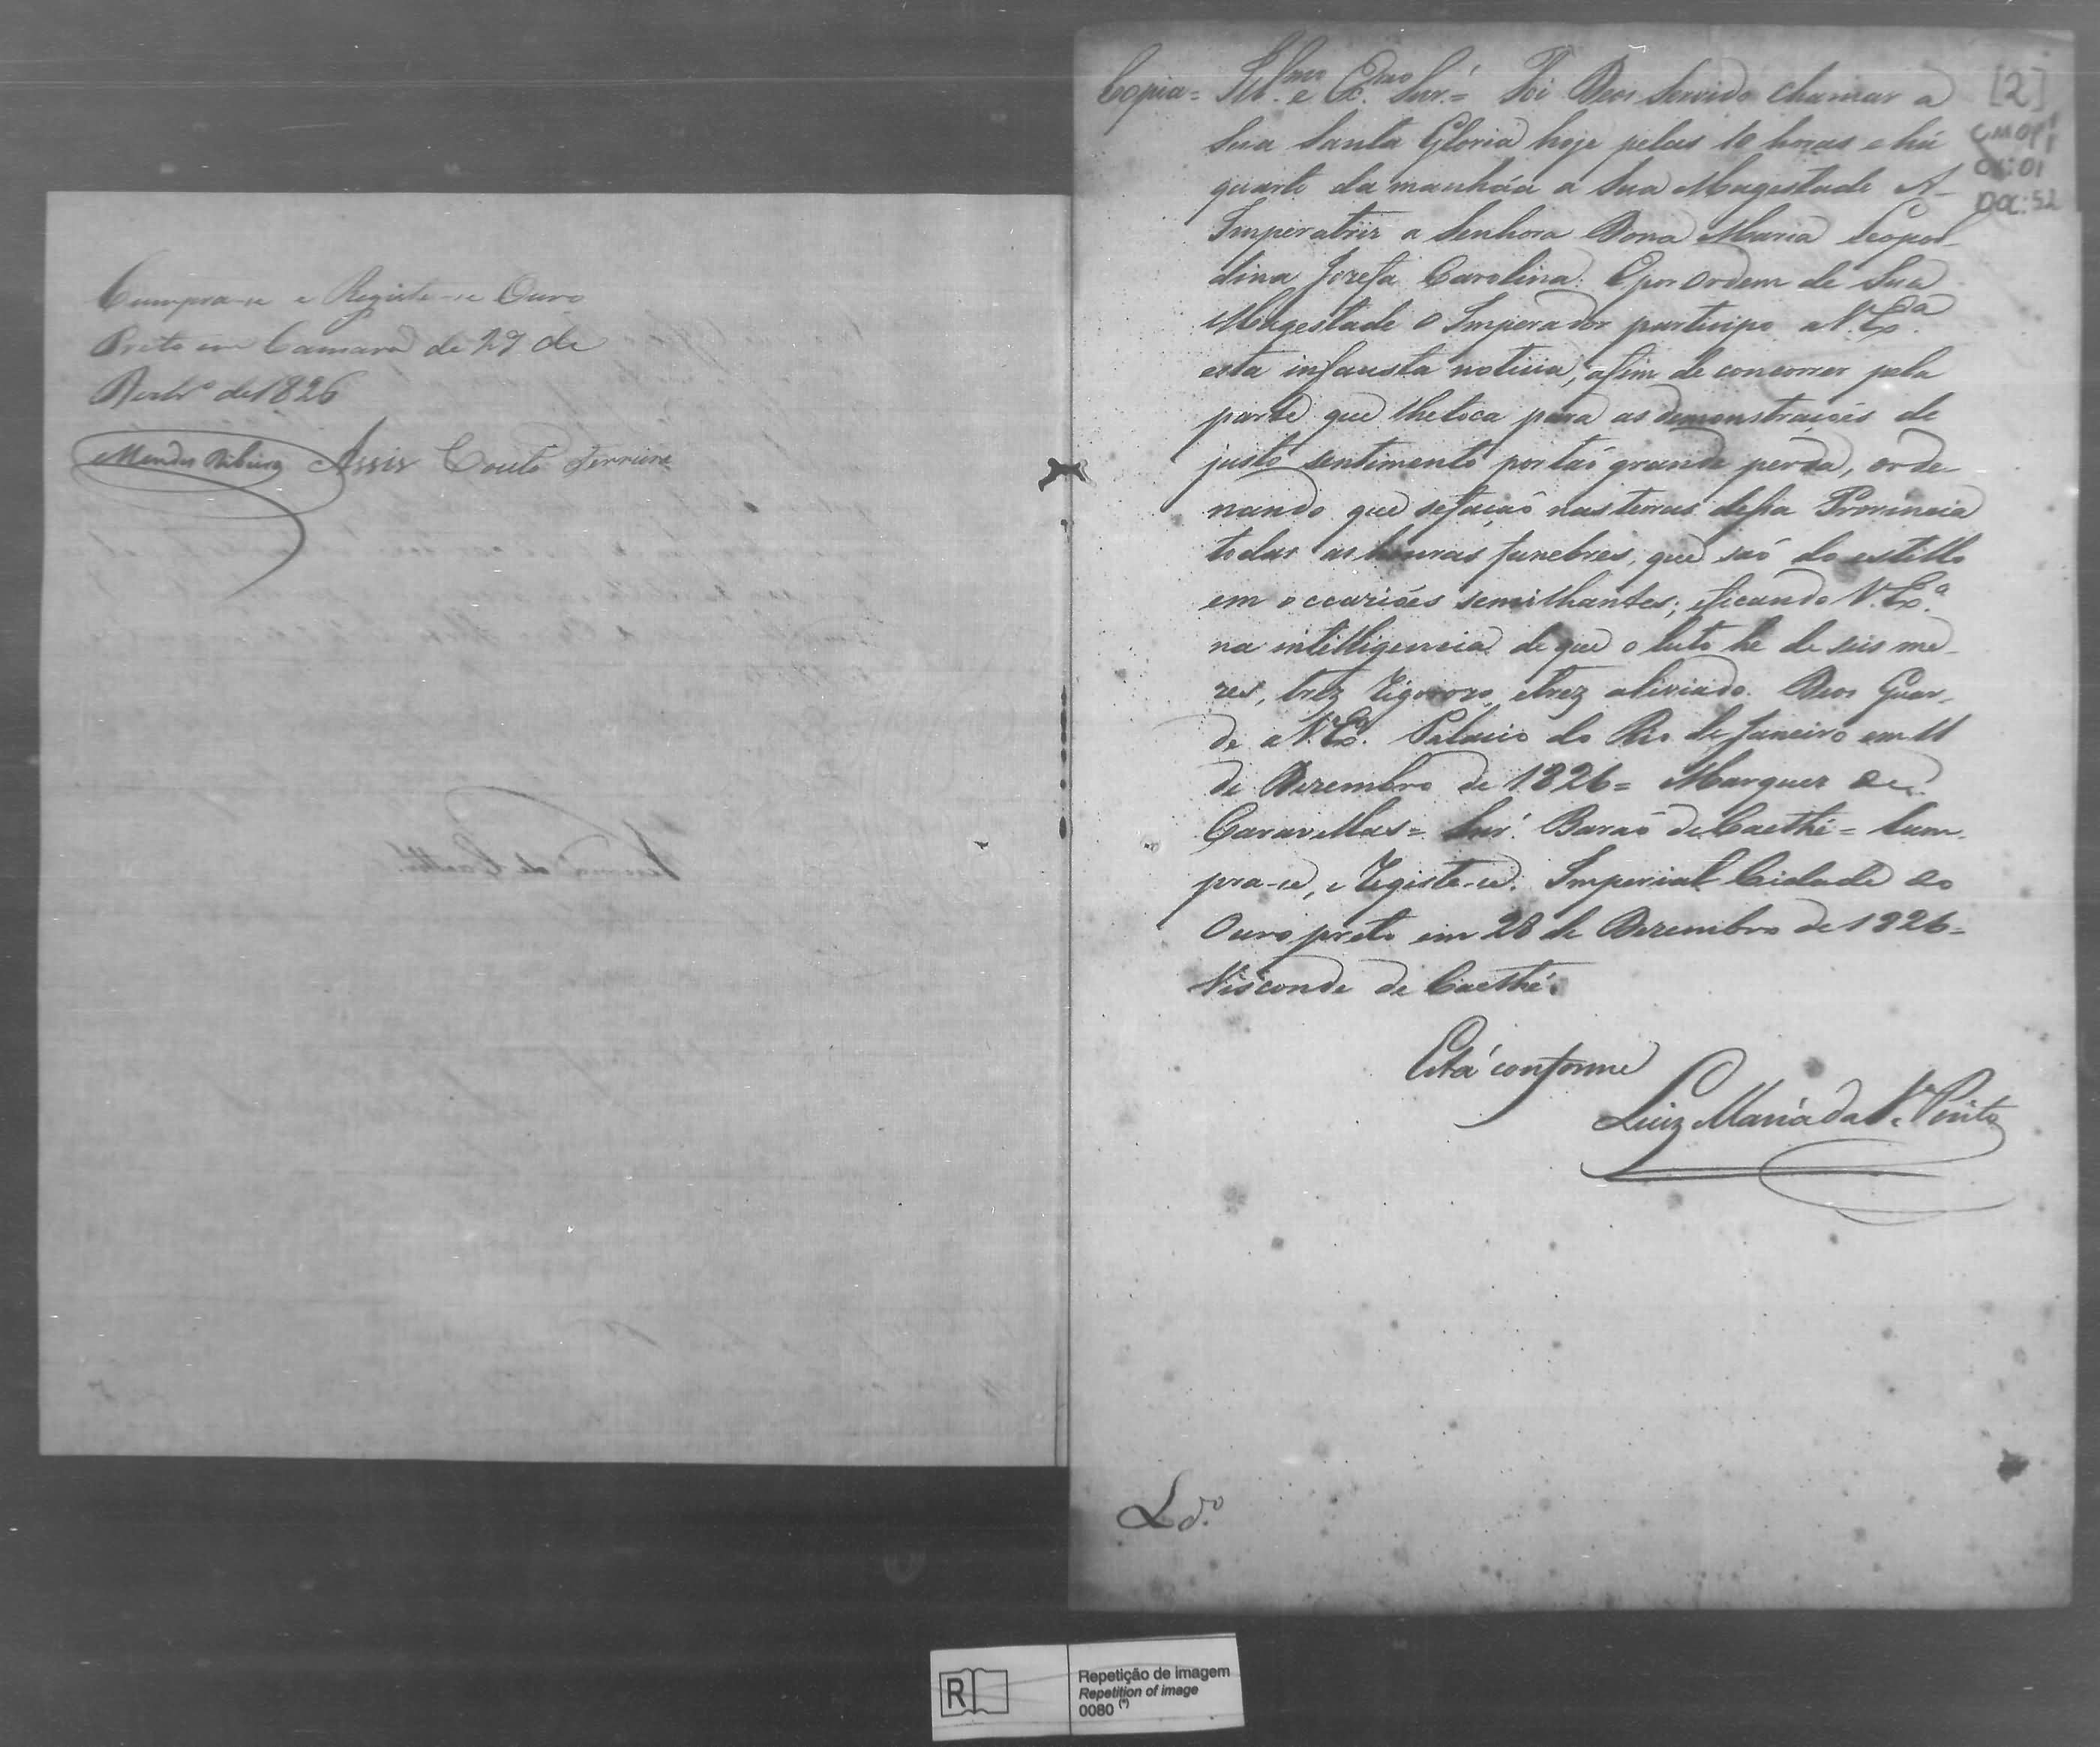 Cumpra-se e Registe-se Ouro
Preto em Camara de 29 de
Dezbro de 1826
Mendes Ribeiro Assis Couto Ferreira
Visconde de Caethé
Copia = Illmo. e Exmo. Snr. = Foi Deos Servido chamar a
Sua Santa Gloria hoje pelas 10 horas e hú
quarto da manhãa a Sua Magestade A
Imperatriz a Senhora Dona Maria Leopol-
dina Jozefa Carolina. E por ordem de Sua
Magestade O Imperador participo a V. Exa.
esta infausta noticia, afim de concorrer pela
parte que lhe toca para as demonstraçoẽs de
justo sentimento por taõ grande perda, orde-
nando que se façaõ nas terras dessa Provincia
todas as honras funebres, que saõ do estillo
em occazioẽs semilhantes; e ficando V. Exa.
na intelligencia de que o luto he de seis me-
zes, trez rigorozo, e trez aliviado. Deos Guar-
de a V. Exa. Palacio do Rio de Janeiro em 11
de Dezembro de 1826 = Marquez de
Caravellas = Snr. Baraõ de Caethé = Cum-
pra-se, e Registe-se. Imperial Cidade do
Ouro preto em 28 de Dezembro de 1826 =
Visconde de Caethé.
Está conforme
Luiz Maria da Sa. Pinto
Ldo.
[2]
CMOP
01:01
DOC:52
R
Repetição de imagem
Repetition of image
0080 (*)